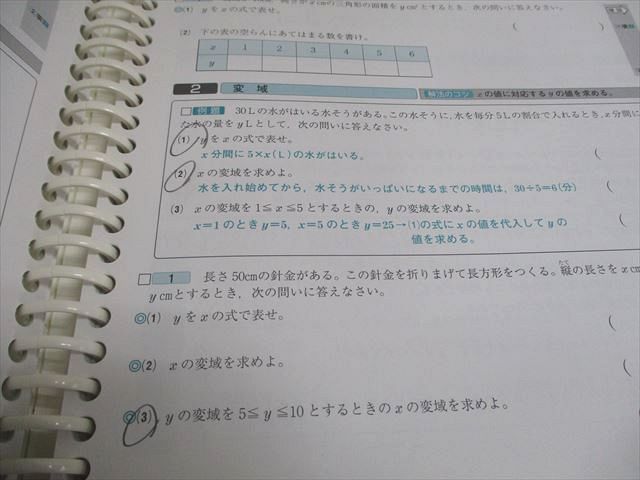 (1) yをxの式で表せ。
高さがxcmの三角形の面積をycm²とするとき、次の問いに答えなさい。
(2) 下の表の空らんにあてはまる数を書け。
x 1 2 3 4 5 6
y
2 変域
解法のコツ xの値に対応するyの値を求める。
例題 30Lの水がはいる水そうがある。この水そうに、水を毎分5Lの割合で入れるとき、x分間に
た水の量をyLとして、次の問いに答えなさい。
(1) yをxの式で表せ。
x分間に5×x(L)の水がはいる。
(2) xの変域を求めよ。
水を入れ始めてから、水そうがいっぱいになるまでの時間は、30÷5=6(分)
(3) xの変域を1≦x≦5とするときの、yの変域を求めよ。
x=1のときy=5、x=5のときy=25→(1)の式にxの値を代入してyの
値を求める。
1 長さ50cmの針金がある。この針金を折りまげて長方形をつくる。縦の長さをxcm
たて
ycmとするとき、次の問いに答えなさい。
(1) yをxの式で表せ。
(2) xの変域を求めよ。
(3) yの変域を5≦y≦10とするときのxの変域を求めよ。